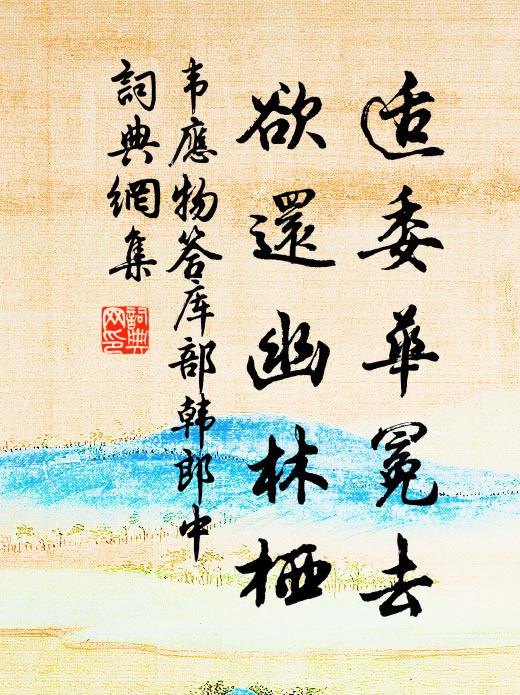 适委華冕去
欲還幽林栖
韦應物答库部韩郎中
詞典網集
詞典
网印